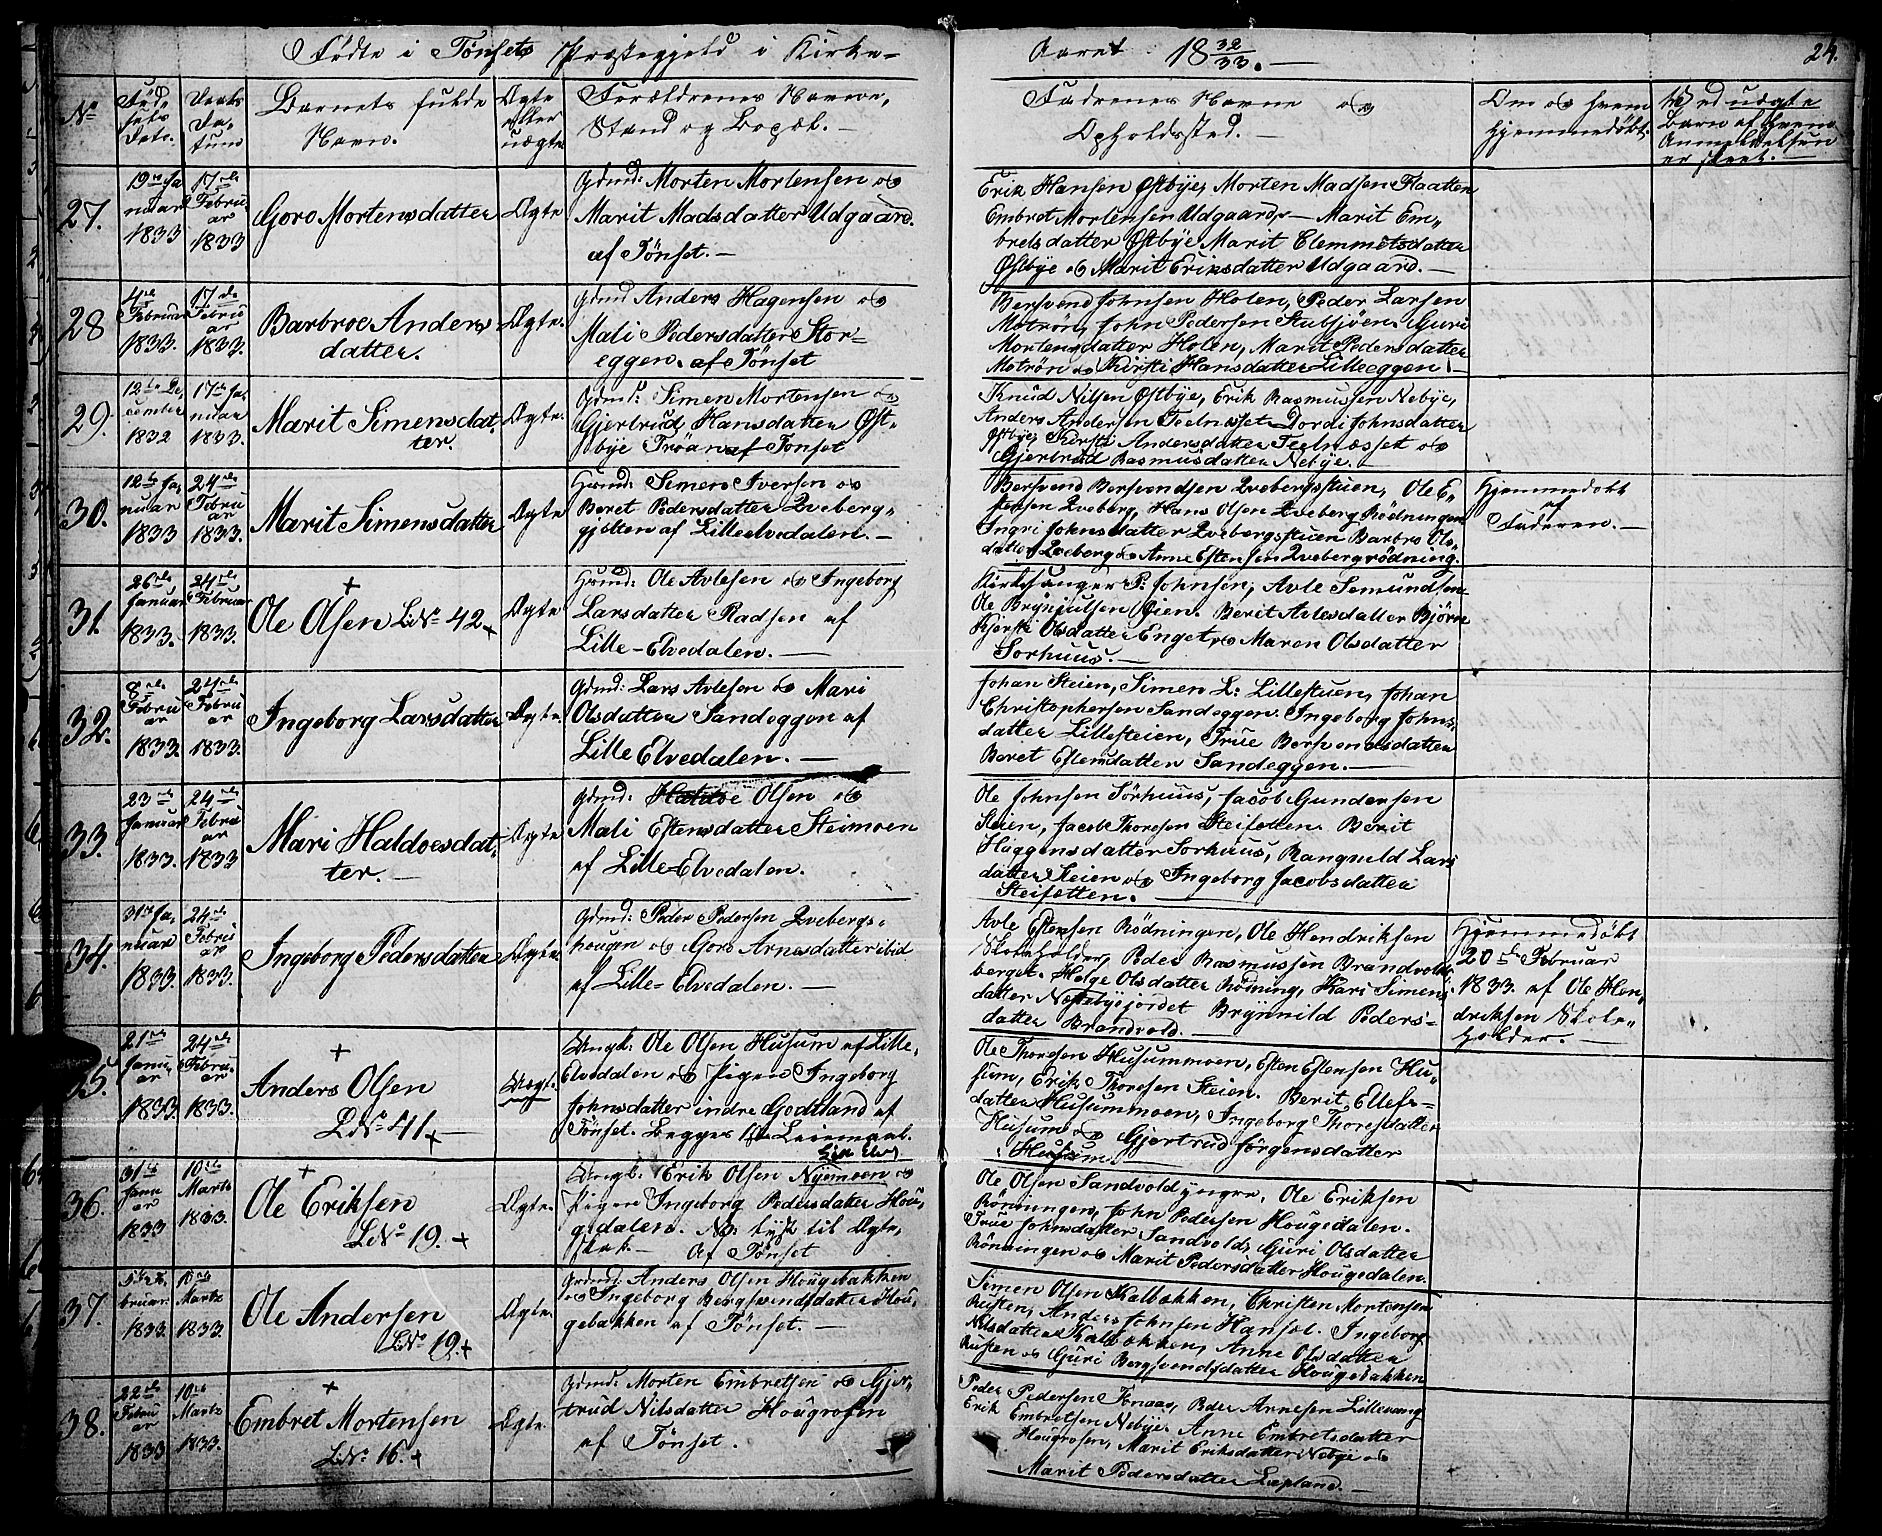 Fødte i Tønsets Præstegjeld i Kirke-
Aaret 18 32/33. —
24.
No
Fød-
sels
Dato.
Daabs
Da-
tum
Barnets fulde
Navn.
Ægte
eller
uægte
Forældrenes Navne,
Stand og Bopæl. —
Faddrenes Navne og
Opholdssted. —
Om og hvem
hjemmedøbt.
Ved uægte
Barn af hvem
Anmeldelsen
er skeet. —
27.
19de Ja
nuar
1833
17de
Febru
ar
1833
Goro Mortensdatter
Ægte
Gdmd: Morten Mortensen og
Marit Madsdatter Udgaard.
af Tönset. —
Erik Hansen Østbye, Morten Madsen Flaatten
Embret Mortensen Udgaard, — Marit Em-
bretsdatter Østbye Marit Clemmetsdatter
Østbye og Marit Eriksdatter Udgaard. —
28
4de
Februar
1833.
17de
Febru
ar
1833.
Barbroe Anders
datter.
Ægte.
Gdmd Anders Hagensen og
Mali Pedersdatter Stor-
eggen. af Tönset
Bersvend Johnsen Holen, Peder Larsen
Motrön, John Pedersen Stubsjöen. Guri
Mortensdatter Holen, Marit Pedersdatter
Motrön og Kirsti Hansdatter Lilleeggen. —
29.
12te De
cember
1832
17de Ja
nuar
1833.
Marit Simensdat,
ter.
Ægte.
Gdmd: Simen Mortensen og
Gjertrud Hansdatter Øst-
bye Tröan af Tönset
Knud Nilsen Østbye, Erik Rasmussen Nebye,
Anders Andersen Telnesset Dordi Johnsdatter
Østbye Kirsti Andersdatter Telnæsset og
Gjertrud Rasmusdatter Nebye. —
30.
12te Ja,
nuar
1833
24de
Febru
ar
1833.
Marit Simensdatter
Ægte
Huusmd: Simen Iversen og
Beret Pedersdatter Qveberg-
gjelten af Lilleelvedalen. —
Bersvend Bersvendsen Qvebergstuen, Ole E-
stensen Qveberg, Hans Olsen Qveberg Rödningen
Ingri Johnsdatter Qvebergstuen Barbro Ols-
datter Qveberg og Anne Estensen Qvebergrödning.
Hjemmedøbt
af
Faderen. —
31.
26de
Januar
1833.
24de
Februar
1833.
+
Ole Olsen LNo 42 +
Ægte
Huusmd: Ole Avlesen og Ingeborg
Larsdatter Radsen af
Lille-Elvedalen. —
Kirkesanger P. Johnsen, Avle Semundsen
Ole Brynjulsen Øien. Berit Avlesdatter Björn
Kjersti Olsdatter Enget, og Maren Olsdatter
Sorhuus. —
32.
8de
Febru
ar
1833.
24de
Febru
ar
1833.
Ingeborg Larsdatter
Ægte.
Gdmd: Lars Avlesen og Mari
Olsdatter Sandeggen af
Lille Elvedalen. —
Johan Steien, Simen L: Lillestuen, Johan
Christophersen Sandeggen. Ingeborg Johns-
datter Lillesteien, True Bersvendsdatter
Beret Estensdatter Sandeggen. —
33.
23de
Januar
1833.
24de
Febru
ar
1833
Mari Haldoesdat,
ter. —
Ægte
Gdmd: Haldoe Olsen og
Mali Estensdatter Steimoen
af Lille-Elvedalen.
Ole Johnsen Sörhuus, Jacob Gundersen
Steien, Jacob Thoresen Steisetten. Berit
Haggensdatter Sorhuus, Rangnild Lars
datter Steien og Ingeborg Jacobsdatter
Steisetten.
34.
31te Ja,
nuar
1833.
24de
Febru
ar
1833.
Ingeborg Pedersdatter
Ægte.
Gdmd: Peder Pedersen Qvebergs-
hougen og Goro Arnesdatter ibid
af Lille-Elvedalen. —
Avle Estensen Rödningen, Ole Hendriksen
Skoleholder, Peder Rasmussen Brandvold
berget. Helge Olsdatter Rödning, Kari Simens
datter Nordbyejordet Brynnild Peders-
datter Brandvold. —
Hjemmedøbt
20de Februar
1833. af Ole Hen,
driksen Skole-
holder. —
35.
21de
Janu-
ar
1833.
24de
Febru-
ar
1833.
+
Anders Olsen
LNo 41 +
Uægte
Ungk: Ole Olsen Husum af Lille-
Elvedalen og Pigen Ingeborg
Johnsdatter indre Godtland af
Tönset. Begges 1ste Leiermaal.
Ole Thoresen Husummoen, Esten Estensen Hu-
sum, Erik Thoresen Steien. Berit Ellefs-
datter Husummoen, Ingeborg Thoresdatter
Husum og Gjertrud Jörgensdatter
Husum. —
36.
31te
Janu
ar
1833
10de
Marts
1833.
+
Ole Eriksen
LNo 19. +
Ægte.
Lille Elvd
Ungk. Erik Olsen Nyemoen og
Pigen Ingeborg Pedersdatter Hou,
gedalen. NB. lyst til Ægte,
skab — Af Tönset
Ole Olsen Sandvold yngre, Ole Eriksen
Rönningen, John Pedersen Hougedalen.
True Johnsdatter Sandvold, Guri Olsdatter
Rönningen og Marit Pedersdatter Hougedalen.
37.
5te Fe,
bruar.
1833.
10de
Marts
1833.
Ole Andersen
LNo 19. +
Ægte.
Grdmd: Anders Olsen Hougebakken
og Ingeborg Bergsvendsdatter Hou,
gebakken af Tönset. —
Simen Olsen Kalbakken, Christen Mortensen
Rusten, Anders Johnsen Hansæl. Ingeborg
Nilsdatter Kalbakken, Anne Olsdatter
Rusten og Guri Bergsvendsdatter Hougebakken
38.
22de
Febru
ar
1833
10de
Marts
1833.
+
Embret Mortensen
LNo 16. +
Ægte.
Gdmd: Morten Embretsen og Gjer,
trud Nilsdatter Hougrosen
af Tönset.
Peder Pedersen Knaas, Peder Arnesen Lillevang
Erik Embretsen Nebye. Anne Embretsdatter
Hougrosen, Marit Eriksdatter Nebye og
Marit Pedersdatter Lapland. —